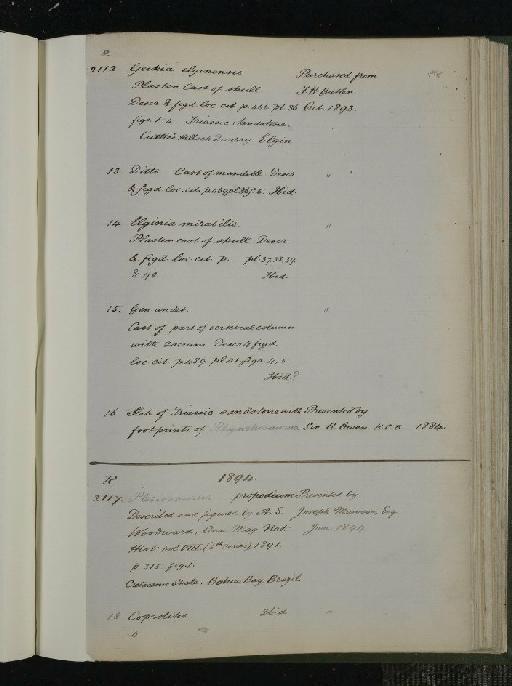 R
2112 Geikia elginensis Purchased from
Plaster Cast of skull F. H. Butler
Descr. & figd. loc. cit. p. pl. 36 Oct. 1893.
figs. 1-4 Triassic Sandstone.
Cutties Hillock Quarry Elgin
13. Ditto Cast of mandible Descr "
& figd. loc. cit. Ibid.
14. Elginia mirabilis. "
Plaster cast of skull Descr
& figd. loc. cit. p. pl 37. 38. 39.
& 40 Ibid.
15. Gen undet. "
Cast of part of vertebral column
with sacrum Descr & figd.
loc. cit. p. 489 pl. figs. 4, 5
Ibid?
16 Slab of Triassic sandstone with Presented by
footprints of Rhynchosaurus Sir R. Owen K.C.B. 1884.
R 1894.
2117. Plesiosaurus propodium Presented by
Described and figured by A. S. Joseph Mawson Esq
Woodward, Ann. Mag. Nat. June 1894
Hist. vol. VIII. (6th series) 1891.
p. 315 fig.
Cretaceous shale. Bahia Bay, Brazil.
18 Coprolites Ibid "